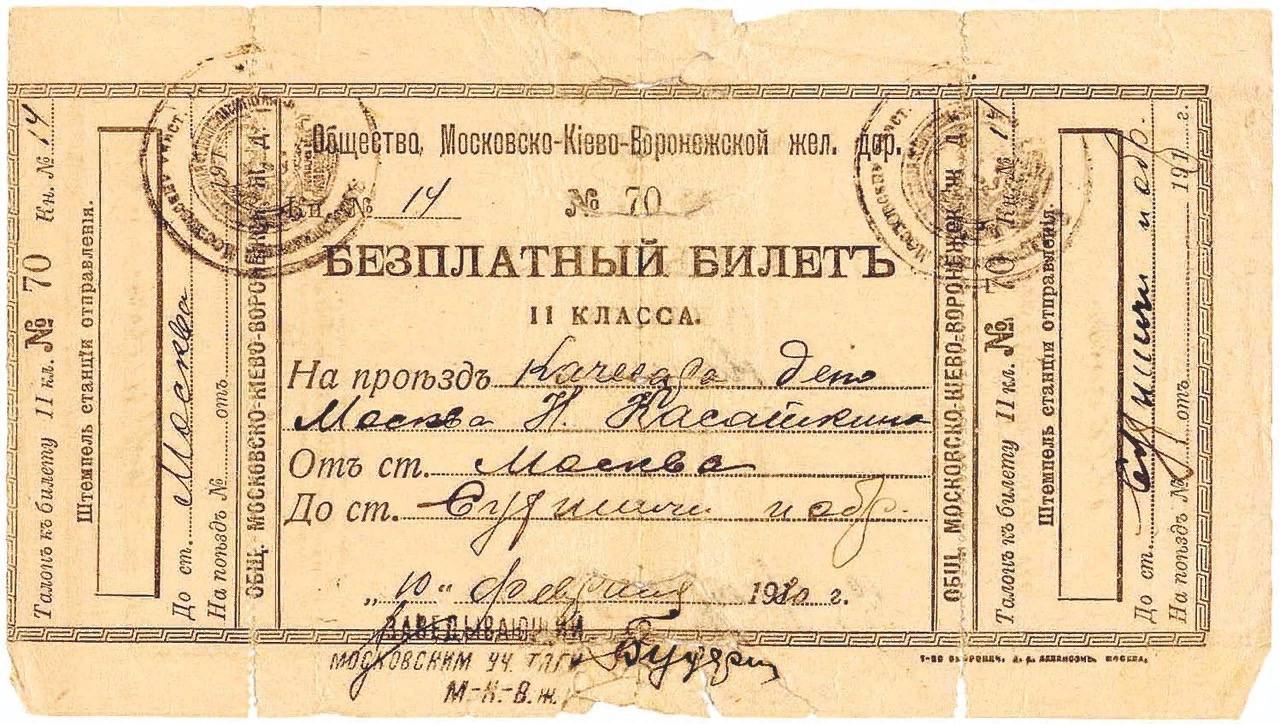 Общество, Московско-Кіево-Воронежской жел. дор.
Кн. № 14 № 70
БЕЗПЛАТНЫЙ БИЛЕТЪ
II КЛАССА.
На проѣздъ Качегара депо
Москва Н. Касаткина
Отъ ст. Москва
До ст. и обр.
„10" Февраля г.
ЗАВЕДЫВАЮЩИЙ
МОСКОВСКИМ УЧ. ТЯГИ
М-К-В. ж.
Талонъ къ билету II кл. № 70 Кн. № 14
Штемпель станціи отправленія.
До ст. Москва
На поѣздъ № отъ 191
ОБЩ. МОСКОВСКО-КІЕВО-ВОРОНЕЖСК. Ж. Д.
ОБЩ. МОСКОВСКО-КІЕВО-ВОРОНЕЖСК. Ж. Д.
Талонъ къ билету II кл. № 70 Кн. № 14
Штемпель станціи отправленія.
До ст. и обр.
На поѣздъ № отъ 191 г.
Т-во МОСКВА.